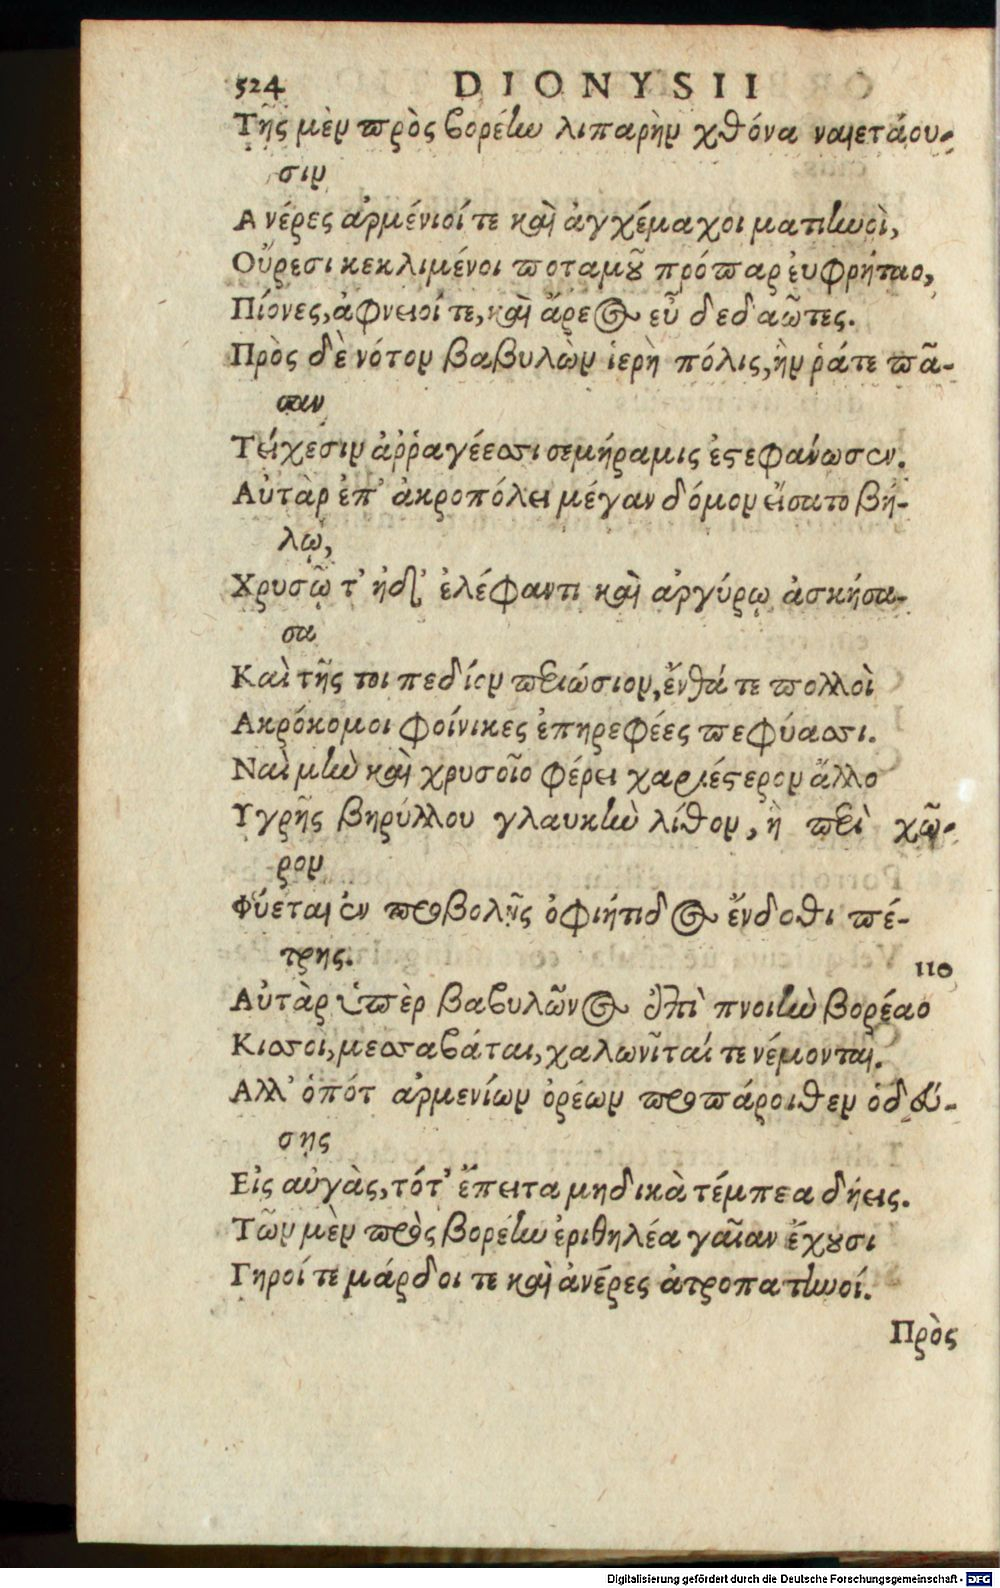 524 DIONYSII
Τῆς μὲν πρὸς βορέην λιπαρὴν χθόνα ναιετάου-
σιν
Ανέρες ἀρμένιοί τε καὶ ἀγχέμαχοι ματιηνοὶ,
Οὔρεσι κεκλιμένοι ποταμοῦ πρόπαρ ἐυφρήταο,
Πίονες, ἀφνειοί τε, καὶ ἄρεος εὖ δεδαῶτες.
Πρὸς δὲ νότον βαβυλὼν ἱερὴ πόλις, ἣν ῥάτε πᾶ-
σαν
Τείχεσιν ἀῤῥαγέεσσι σεμήραμις ἐστεφάνωσεν.
Αὐτὰρ ἐπ' ἀκροπόλει μέγαν δόμον εἵσατο βή-
λῳ,
Χρυσῷ τ' ἠδ' ἐλέφαντι καὶ ἀργύρῳ ἀσκήσα-
σα
Καὶ τῆς τοι πεδίον περιώσιον, ἔνθά τε πολλοὶ
Ακρόκομοι φοίνικες ἐπηρεφέες πεφύασσι.
Ναὶ μὴν καὶ χρυσοῖο φέρει χαριέστερον ἄλλο
Υγρῆς βηρύλλου γλαυκὴν λίθον, ἣ περὶ χῶ-
ρον
Φύεται ἐν προβολῇς ὀφιήτιδος ἔνδοθι πέ-
τρης.
110
Αὐτὰρ ὑπὲρ βαβυλῶνος ἐπὶ πνοιὴν βορέαο
Κισσοι, μεσσαβάται, χαλωνῖταί τε νέμονται.
Αλλ' ὁπότ ἀρμενίων ὀρέων προπάροιθεν ὁδεύ-
σῃς
Εἰς αὐγὰς, τότ' ἔπειτα μηδικὰ τέμπεα δήεις.
Τῶν μὲν πρὸς βορέην ἐριθηλέα γαῖαν ἔχουσι
Γηροί τε μάρδοι τε καὶ ἀνέρες ἀτροπατηνοί.
Πρὸς
Digitalisierung gefördert durch die Deutsche Forschungsgemeinschaft - DFG